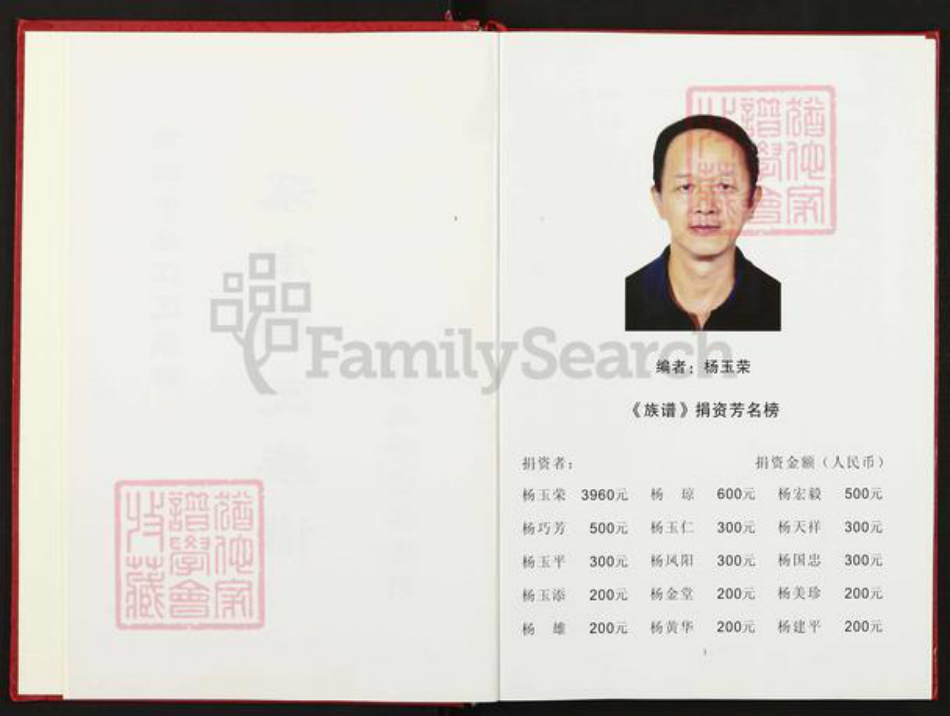 猶他家
譜學會
收藏
FamilySearch
猶他家
譜學會
收藏
编者：杨玉荣
《族谱》捐资芳名榜
捐资者： 捐资金额（人民币）
杨玉荣 3960元 杨 琼 600元 杨宏毅 500元
杨巧芳 500元 杨玉仁 300元 杨天祥 300元
杨玉平 300元 杨凤阳 300元 杨国忠 300元
杨玉添 200元 杨金堂 200元 杨美珍 200元
杨 雄 200元 杨黄华 200元 杨建平 200元
1